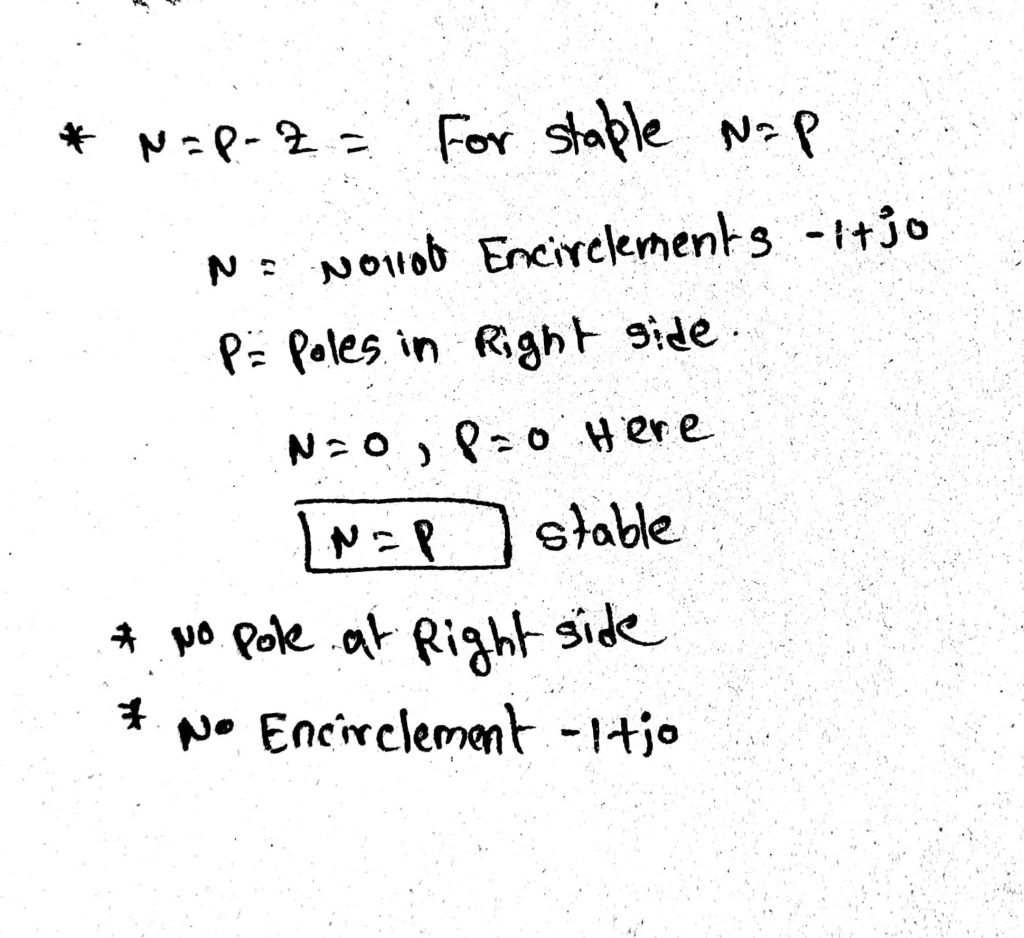 * N = P - Z = For stable N = P
N = No. of Encirclements -1+j0
P = Poles in Right side.
N = 0, P = 0 Here
N = P stable
* No Pole at Right side
* No Encirclement -1+j0